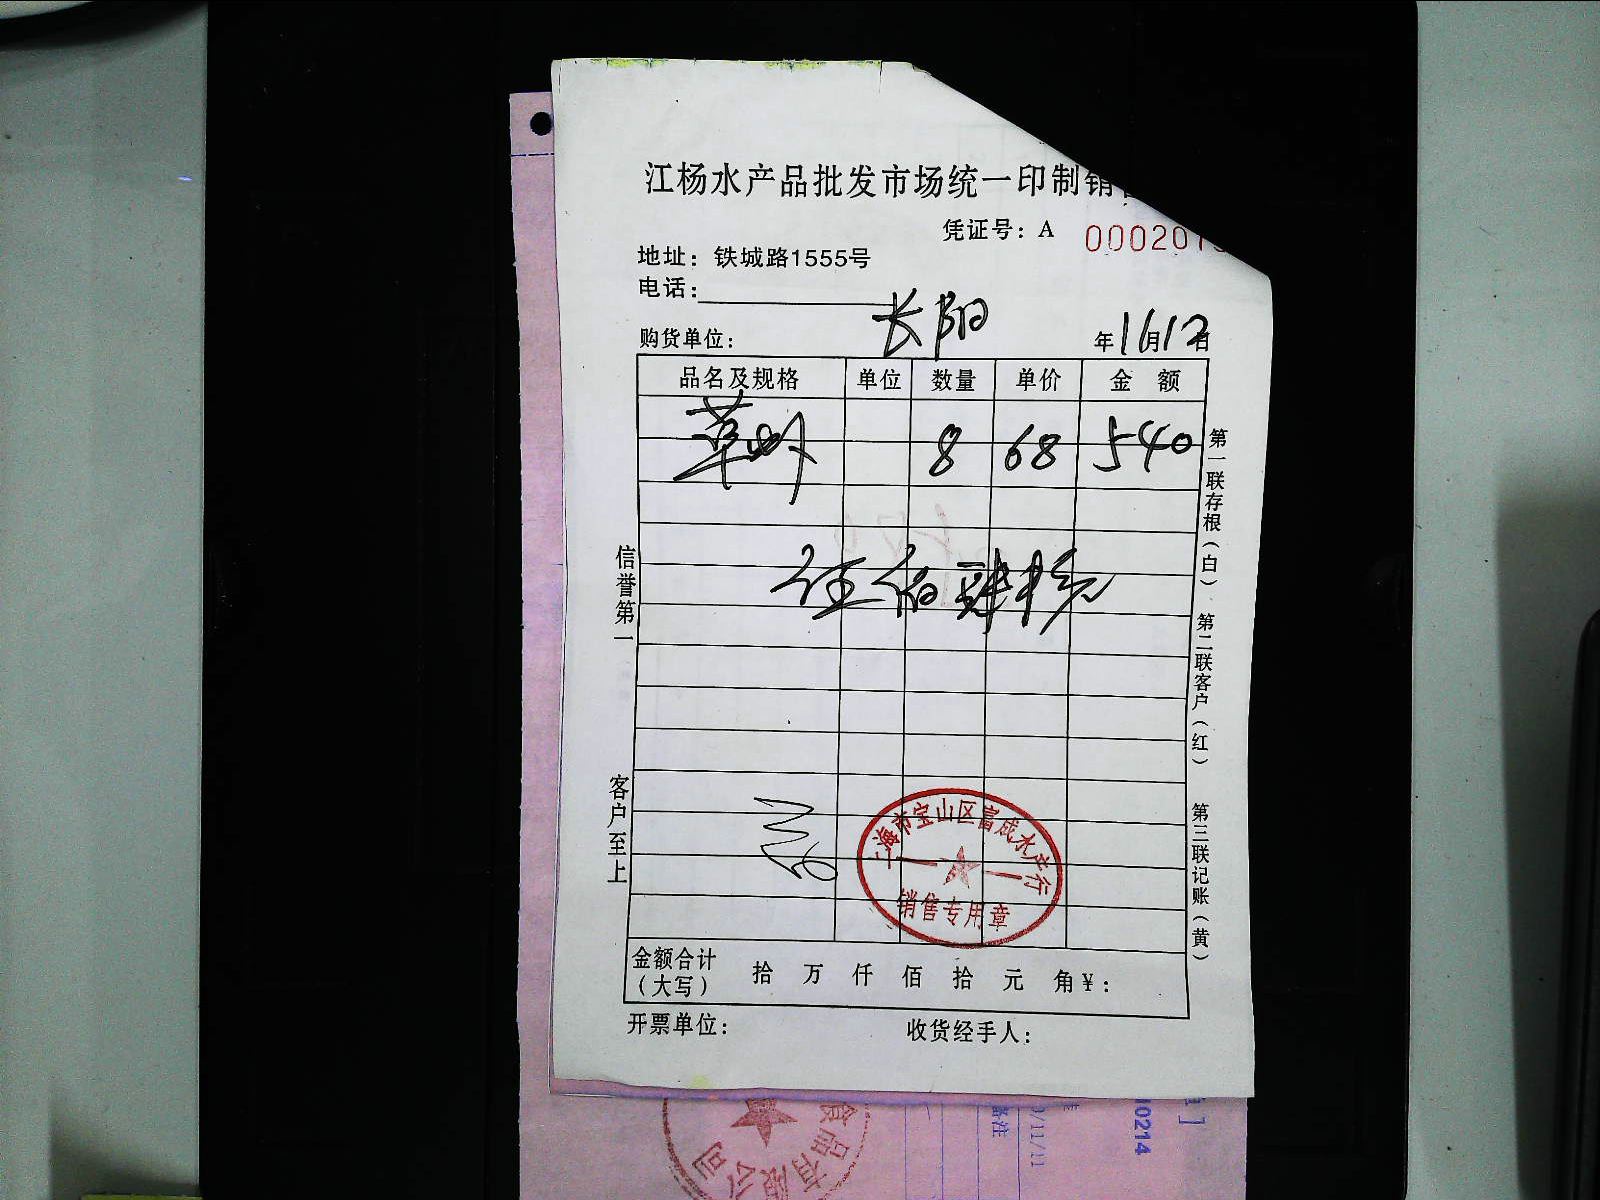 江杨水产品批发市场统一印制销
凭证号：A 000201
地址：铁城路1555号
电话：
购货单位： 长阳 年1月12日
品名及规格 单位 数量 单价 金额
草虾 8 68 540
伍佰肆拾
信誉第一
客户至上
第一联存根（白）
第二联客户（红）
第三联记账（黄）
海市宝山区富成水产行
销售专用章
金额合计（大写） 拾 万 仟 佰 拾 元 角 ¥：
开票单位： 收货经手人：
食品有限公司
备注
/11/11
10214